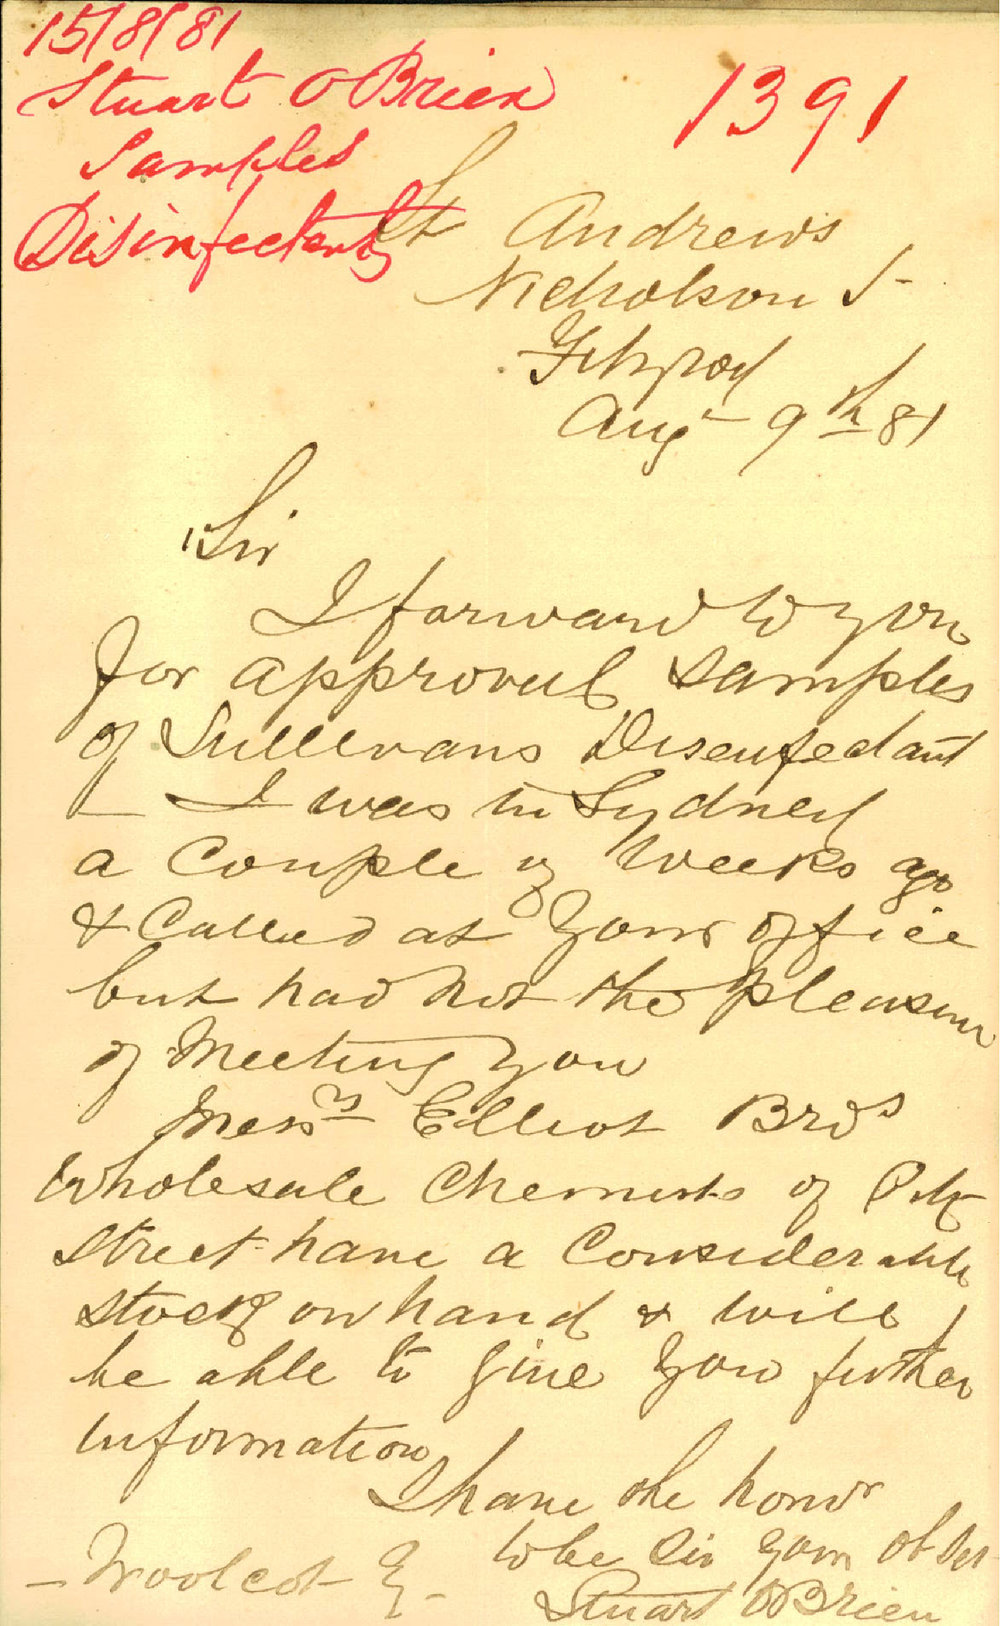 15/8/81
Stuart O'Brien
Samples
Disinfectants
1391
St Andrews
Nicholson St
Fitzroy
Augt 9th 81
Sir
I forward to you
for approval samples
of Sullivans Disenfectant
- I was in Sydney
a Couple of Weeks ago
& Called at Your office
but had not the pleasure
of Meeting you
Messrs Elliot Bros
Wholesale Chemists of Pitt
Street have a Considerable
stock on hand & will
be able to give you further
information
I have the honor
to be Sir your ob Ser
Stuart O'Brien
- Woolcot Eq -